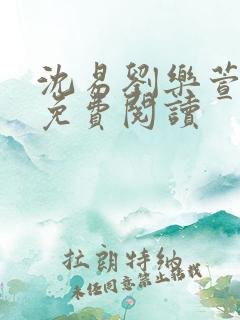 沈易劉樂萱
免費閱讀
拉朗特納
未经同意禁止转载